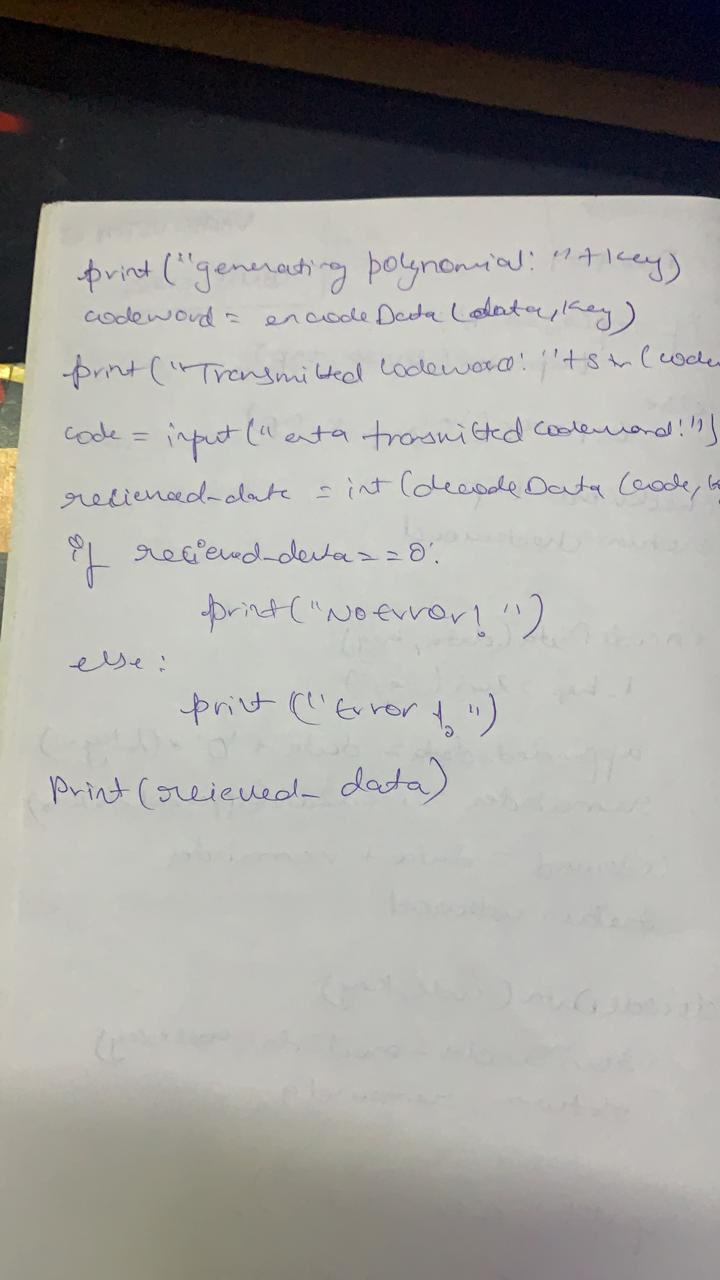 print("generating polynomial: "+key)
codeword = encodeData(data,key)
print("Transmitted codeword: "+str(code
code = input("enta trasmitted codeword:")
recieved_data = int(decodeData(code,k
if recieved_data==0:
print("No error! ")
else:
print("Error! ")
print(recieved_data)